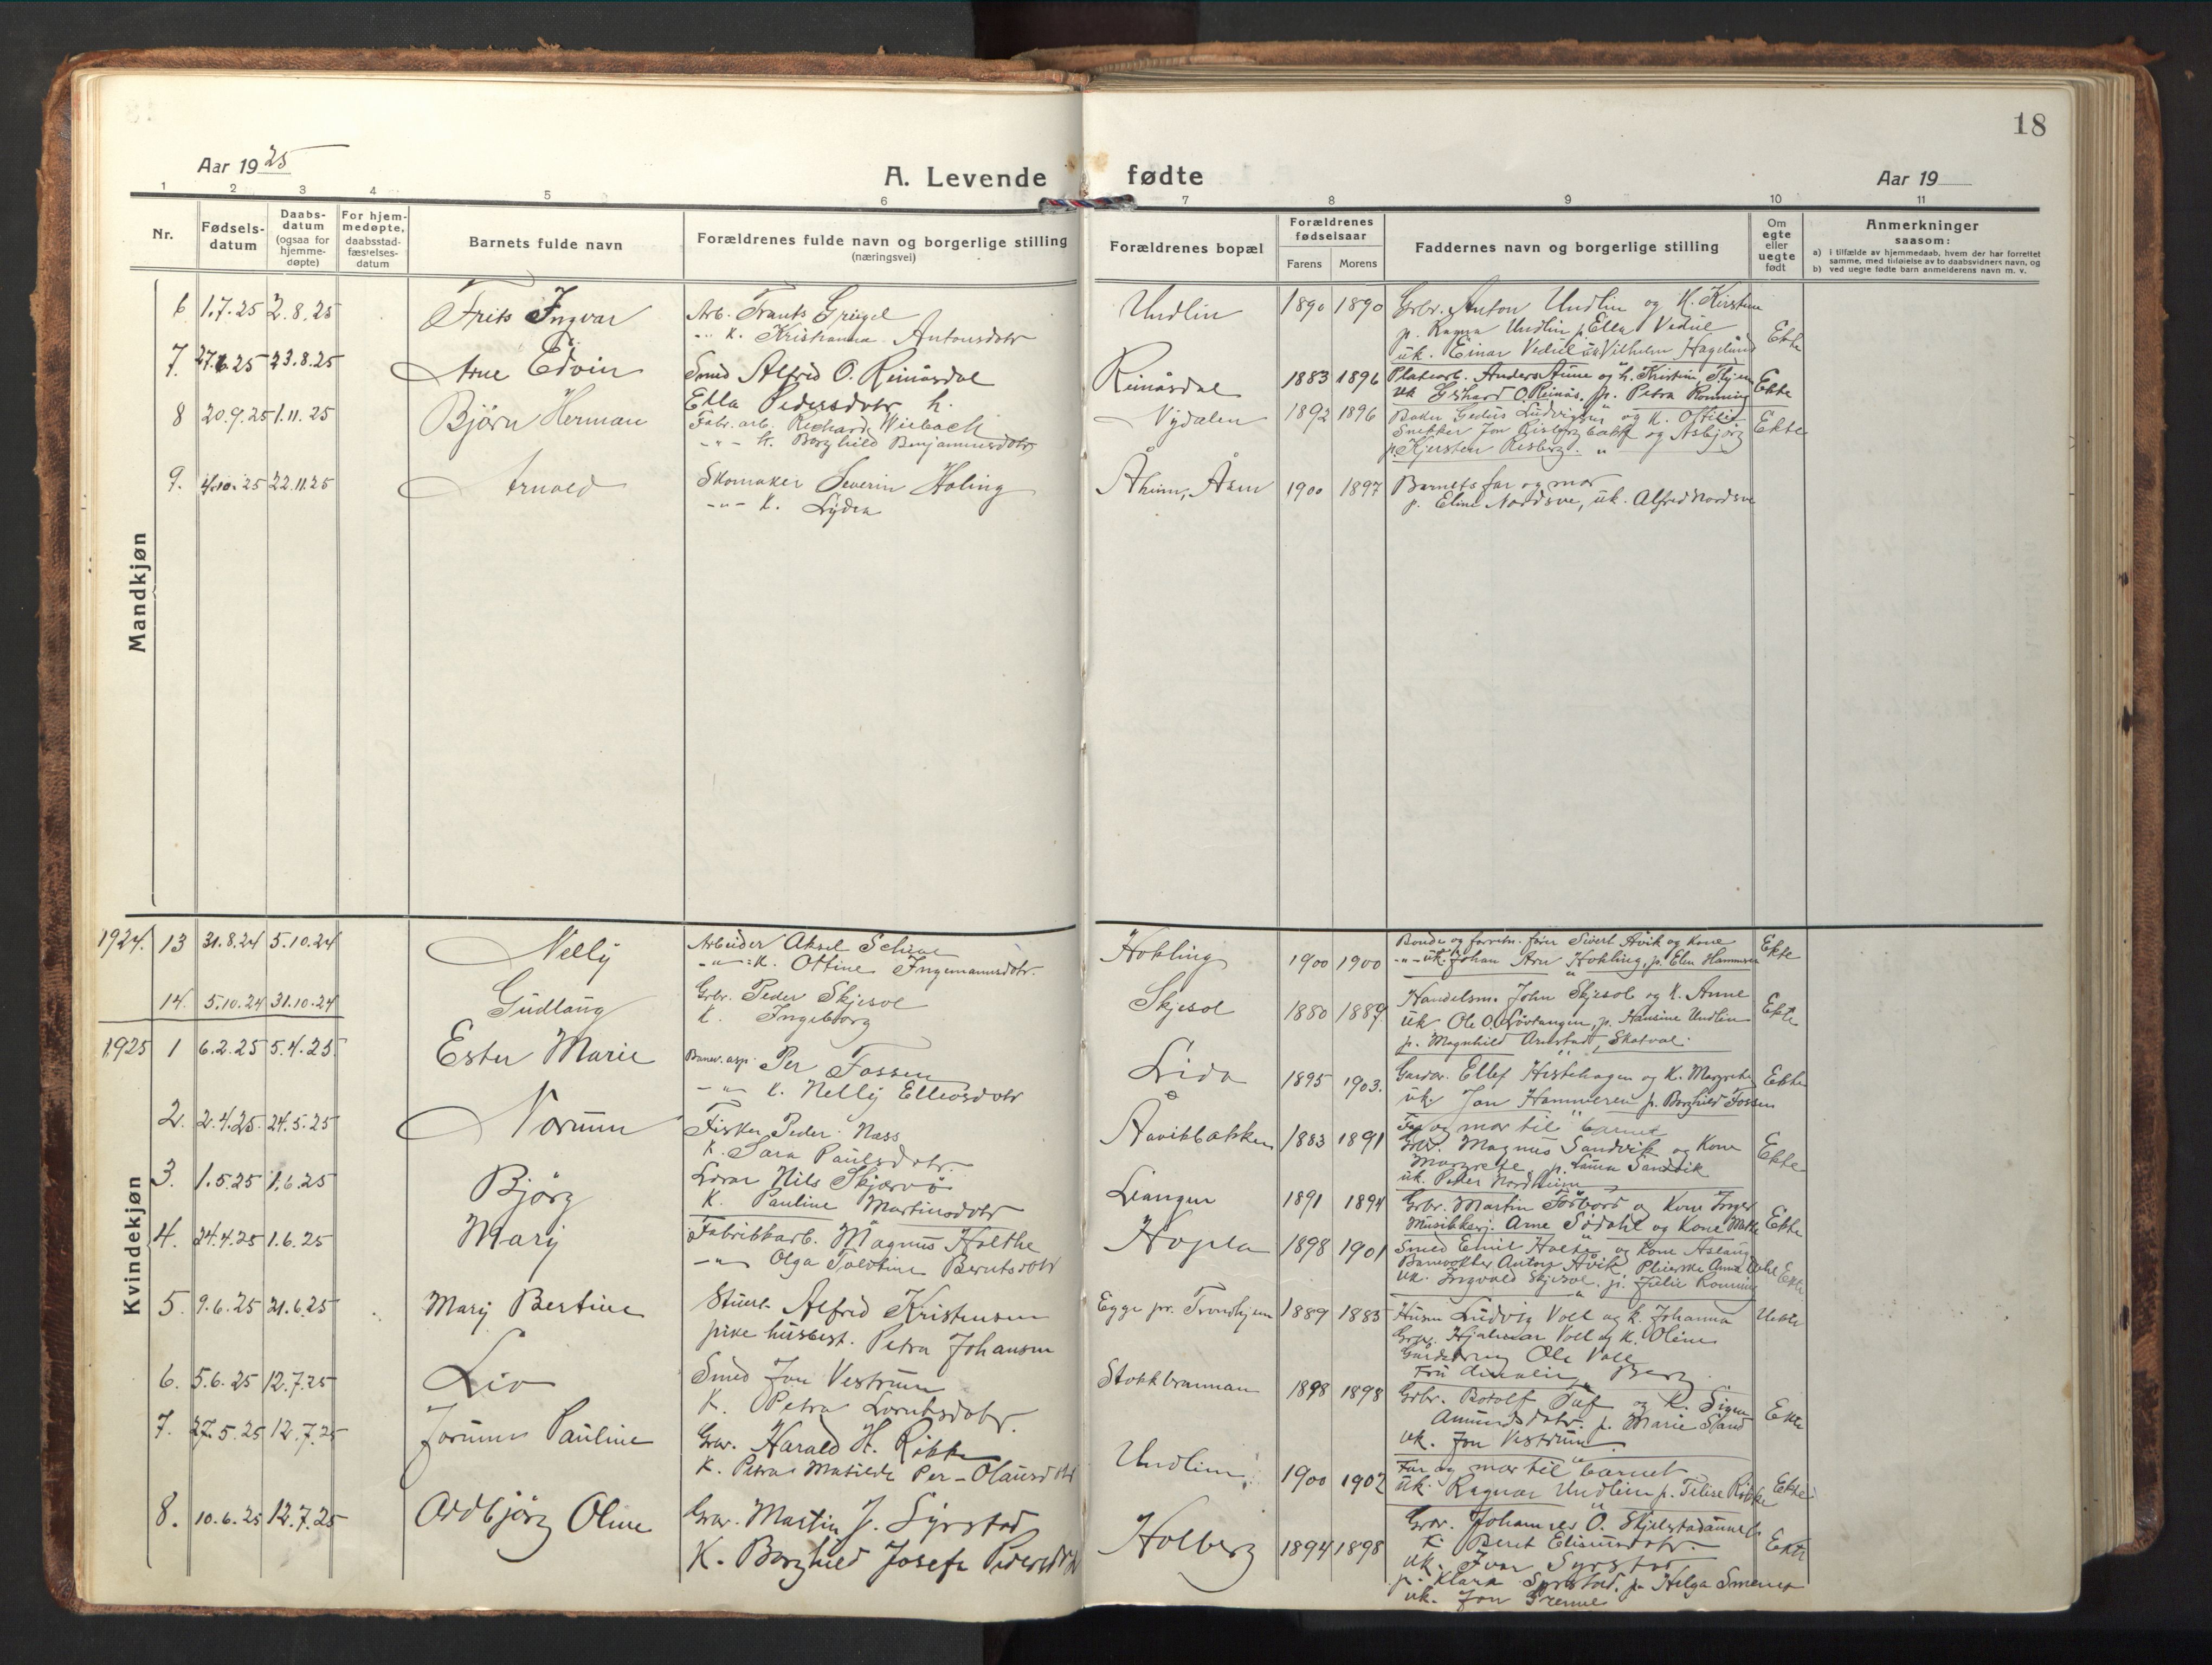 18
Aar 1925
A. Levende fødte
Aar 19
1 2 3 4 5 6 7 8 9 10 11
Nr.
Fødsels-
datum
Daabs-
datum
(ogsaa for
hjemme-
døpte)
For hjem-
medøpte,
daabsstad-
fæstelses-
datum
Barnets fulde navn
Forældrenes fulde navn og borgerlige stilling
(næringsvei)
Forældrenes bopæl
Forældrenes
fødselsaar
Farens Morens
Faddernes navn og borgerlige stilling
Om
egte
eller
uegte
født
Anmerkninger
saasom:
a) i tilfælde av hjemmedaab, hvem der har forrettet
samme, med tilføielse av to daabsvidners navn, og
b) ved uegte fødte barn anmelderens navn m. v.
Mandkjøn
6 1.7.25 2.8.25 Frits Ingvar
Arb. Frants Grigel
K. Kristianna Antonsdotr
Undlin 1890 1890
Grbr. Anton Undlin og K. Kirstine
p. Ragna Undlin p. Ella Vedul
uk. Einar Vedul uk Vilhelm Hagelund
Ekte
7. 27.6.25 23.8.25 Arne Edvin
Smed Alfred O. Reinåsdal
Ella Pedersdotr h.
Reinåsdal 1883 1896
Platearb. Anders Aune og h. Kristine
uk Gerhard O. Reinås, p. Petra Rønning
Ekte
8 20.9.25 1.11.25 Bjørn Herman
Fabr. arb. Richard Wiebach
-"- h. Borghild Benjaminsdotr
Nydalen 1892 1896
Baker Ludvigsen og K. Ottilie
Snekker Jon Risbergbakk og Asbjørg
p. Kjersten Risberg.
Ekte
9. 4.10.25 22.11.25 Arnold
Skomaker Severin Holing
-"- K. Lydia
Åheim, Åsen 1900 1897
Barnets far og mor
p. Eline Nordsve, uk. Alfred Nordsve
Kvindekjøn
1924. 13 31.8.24 5.10.24 Nelly
Arbeider Aksel
-"- K. Ottine Ingemannsdotr.
Hokling 1900 1900
Bonde og forretn. fører Sivert Åvik og Kone
-"- uk. Johan Arn Hokling, p. Elen Hammeren
Ekte
14. 5.10.24 31.10.24 Gudlaug
Grbr. Peder Skjesol
K. Ingeborg
Skjesol 1880 1889
Handelsm. John Skjesol og K. Anne
uk Ole O. Løvtangen, p. Hansine Undlin
p. Magnhild Arnstad, Skatval.
Ekte
1925 1 6.2.25 5.4.25 Ester Marie
Banev. asp. Per Fossen
-"- K. Nelly Ellevsdotr
Lida 1895 1903.
Gardbr. Ellef Histehagen og K. Margrete
uk. Jon Hammeren p. Borghild Fossen
Ekte
2. 2.4.25. 24.5.25 Norunn
Fisker Peder Næss
K. Sara Paulsdotr.
Åavikbakken 1883 1891
Far og mor til barnet
Grbr. Magnus Sandvik og Kone
Margrete, p. Laura Sandvik
uk. Peder Nordheim
Ekte
3. 1.5.25 1.6.25 Bjørg
Lærar Nils Skjærvø
K. Pauline Martinsdotr
Leangen 1891 1894
Grbr. Martin Forbord og Kone Inger
Musikkerj. Arne Sødahl og Kone
Ekte
4. 24.4.25 1.6.25 Mary
Fabrikkarb. Magnus Holthe
-"- Olga Toldtine Berntsdotr
Hopla 1898 1901
Smed Emil Holte og Kone Aslaug
Banevokter Anton Åvik, Pleierske Anna
uk. Ingvald Skjesol, p. Julie Rønning
Ekte
5. 9.6.25 21.6.25 Mary Bertine
Alfred Kristensen
pike husbest. Petra Johansen
Egge pr. Trondhjem 1889 1885
Husm Ludvig Voll og K. Johanna
Grbr. Hjalmar Voll og K. Oline
Ole Voll
Fru Berg
Uekte
6. 5.6.25 12.7.25 Liv
Smed Jon Vestrum
K. Petra Lorntsdotr.
Stokkbrannan 1898 1898
Grbr. Botolf og K. Signe
Amundsdotr. p. Marie Sand
uk. Jon Vestrum
Ekte
7. 27.5.25 12.7.25 Jorunn Pauline
Grbr. Harald H. Rokke
K. Petra Matilde Per-Olausdotr
Undlin 1900 1902
Far og mor til barnet
uk. Ragnar Undlien p. Rokke
Ekte
8. 10.6.25 12.7.25 Oddbjørg Oline
Grbr. Martin J. Syrstad
K. Borghild Josefe Pedersdotr
Holberg 1894 1898
Grbr. Johannes O. Skjelstadaunet
K. Beret Eliasdotr.
uk. Ivar Syrstad
p. Klara Syrstad. p. Helga
uk. Jon
Ekte